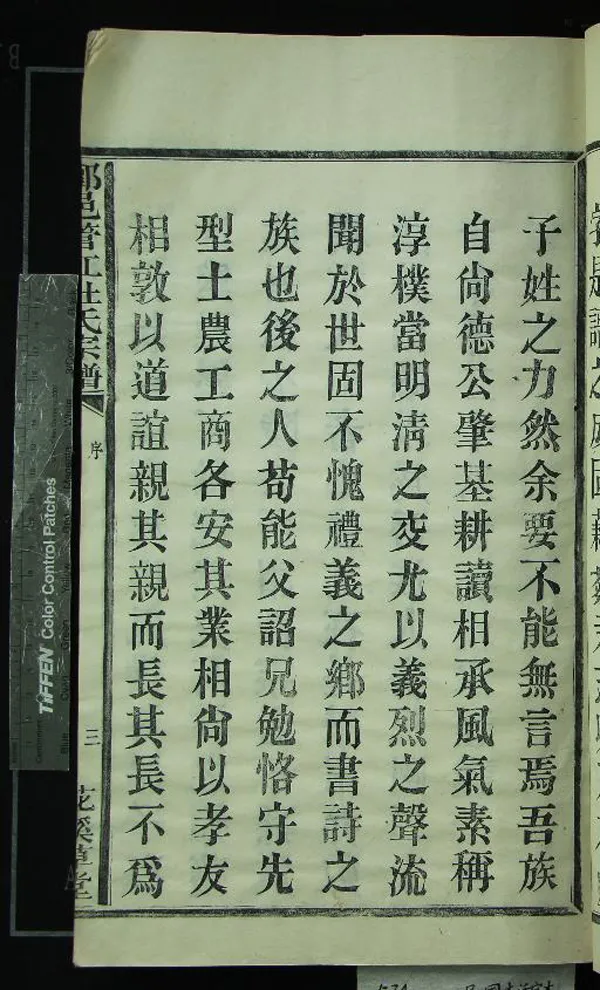 子姓之力然余要不能無言焉吾族
自尙德公肇基耕讀相承風氣素稱
淳樸當明清之交尤以義烈之聲流
聞於世固不愧禮義之鄉而書詩之
族也後之人苟能父詔兄勉恪守先
型士農工商各安其業相尙以孝友
相敦以道誼親其親而長其長不爲
邑管江杜氏宗譜
序
三
花溪草堂
TIFFEN Color Control Patches